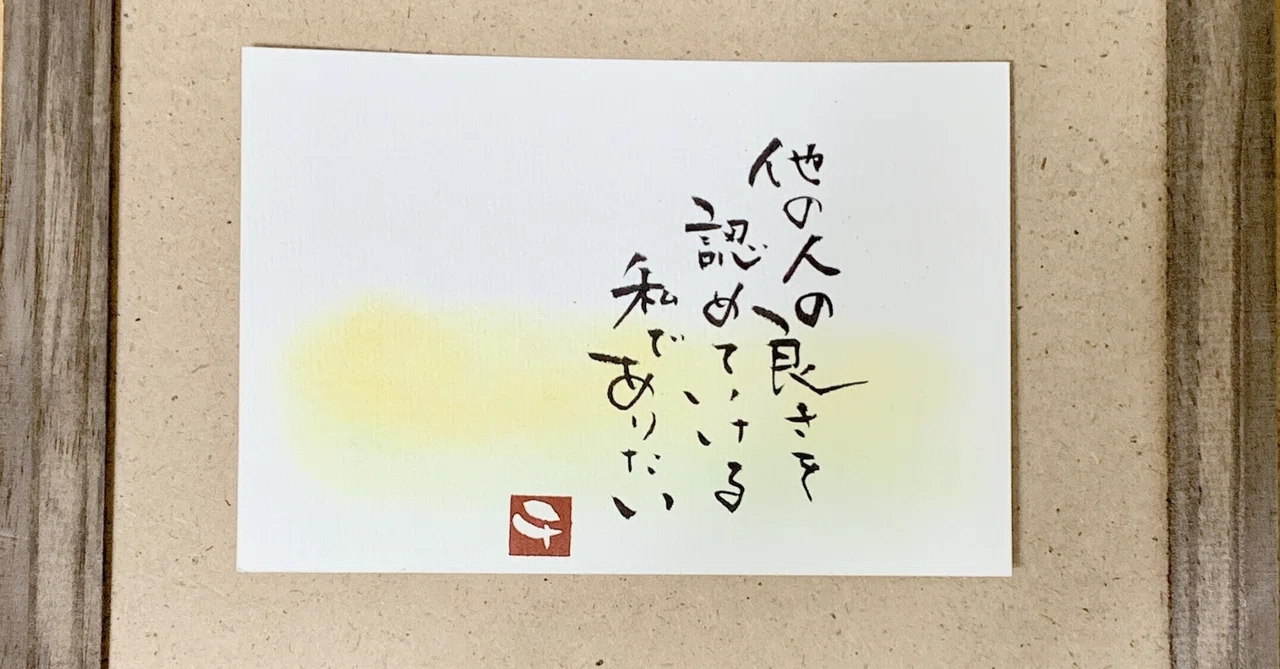 他の人の良さを
認めていける
私でありたい